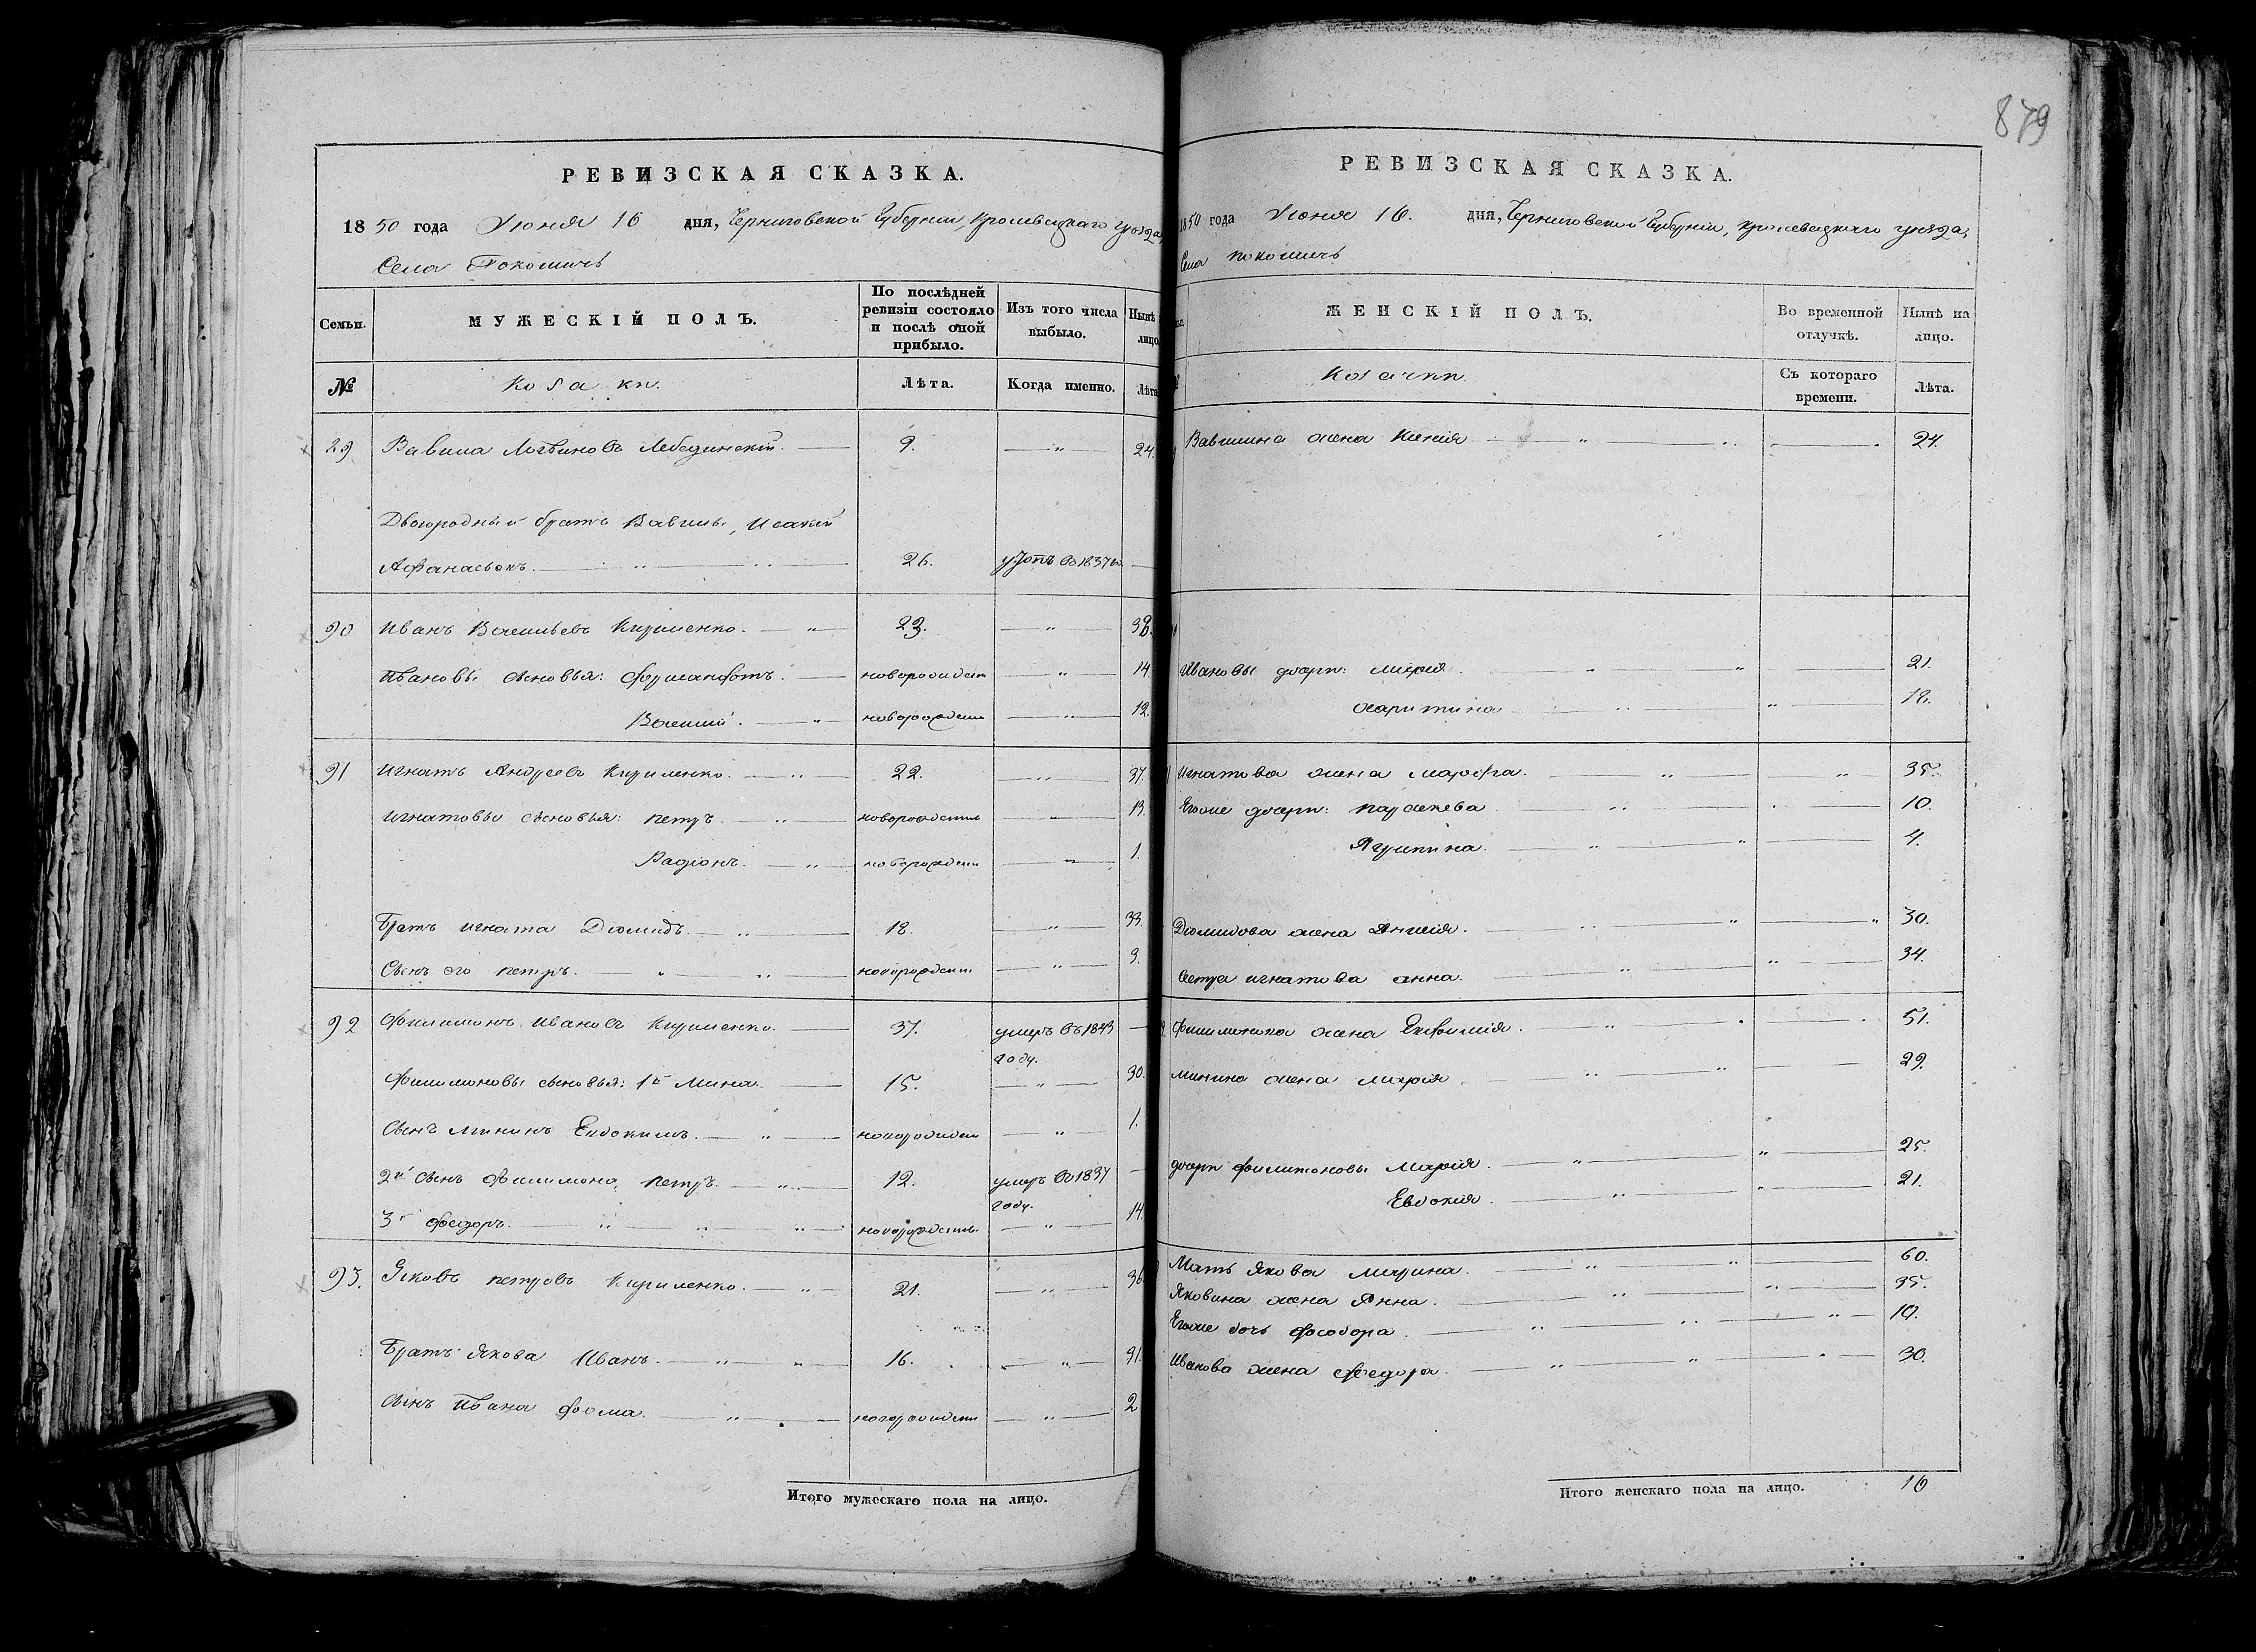 879
РЕВИЗСКАЯ СКАЗКА.
1850 года Июня 16 дня, Черниговской Губерніи, Кролевецкаго уезда,
Села Покошичь
Семьи.
МУЖЕСКІЙ ПОЛЪ.
По послѣдней ревизіи состояло и послѣ оной прибыло.
Изъ того числа выбыло.
Нынѣ лицо.
№
Козаки.
Лѣта.
Когда именно.
Лѣта
29 Вавила Логвиновъ Лебединскій. 9. 24.
Двоюродный братъ Вавилы, Исакій
Афанасьевъ. 26. въ 1837
90 Иванъ Васильевъ Кириленко. 23. 38.
Ивановы сыновья: новорожден 14.
Василий. новорожден 12.
91 Игнатъ Андреевъ Кириленко. 22. 37.
Игнатовы сыновья: Петръ. новорожденъ 13.
Радіонъ. новорожден 1.
Братъ Игната Диомидъ. 18. 33.
Сынъ его Петръ. новорожден 9.
92 Филимонъ Ивановъ Кириленко. 37. умеръ въ 1843
году.
Филимоновы сыновья: 1й Мина. 15. 30.
Сынъ Мининъ Евдокимъ. новорожден 1.
2й сынъ Филимона, Петръ. 12. умеръ въ 1837
году.
3й Федоръ. новорожденъ 14.
93. Яковъ Петровъ Кириленко. 21. 36.
Братъ Якова Иванъ. 16. 31.
Сынъ Ивана Фома. новорожден 2
Итого мужескаго пола на лицо.
РЕВИЗСКАЯ СКАЗКА.
1850 года Июня 16. дня, Черниговской Губерніи, Кролевецкаго уезда,
Села Покошичь
ЖЕНСКІЙ ПОЛЪ.
Во временной отлучкѣ.
Нынѣ на лицо.
Козачки.
Съ котораго времени.
Лѣта.
Вавилина жена Ксенія 24.
Ивановы дочери: Марія 21.
Харитина 18.
Игнатова жена Марфа. 35.
Егоже дочери: Параскева 10.
Агрипина. 4.
Диомидова жена 30.
Сестра Игнатова Анна. 34.
Филимонова жена Евфимія. 51.
Минина жена Марія 29.
дочери Филимоновы Марія. 25.
Евдокия. 21.
Мать Якова Марина. 60.
Яковина жена Анна. 35.
Егоже дочь Феодора. 10.
Иванова жена Федора. 30.
Итого женскаго пола на лицо. 16